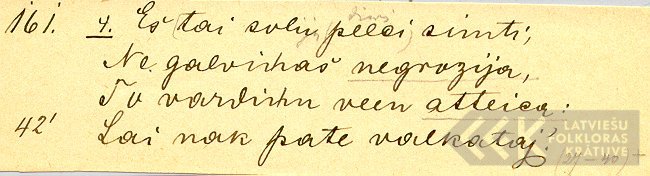 161. 4. Eš tai solu pecci simti,
Ne galvihaš negrozija,
To vardihu veen atteica:
42' Lai nak pate valkataj!
(27-40)-
LATVIEŠU
FOLKLORAS
KRĀTUVE